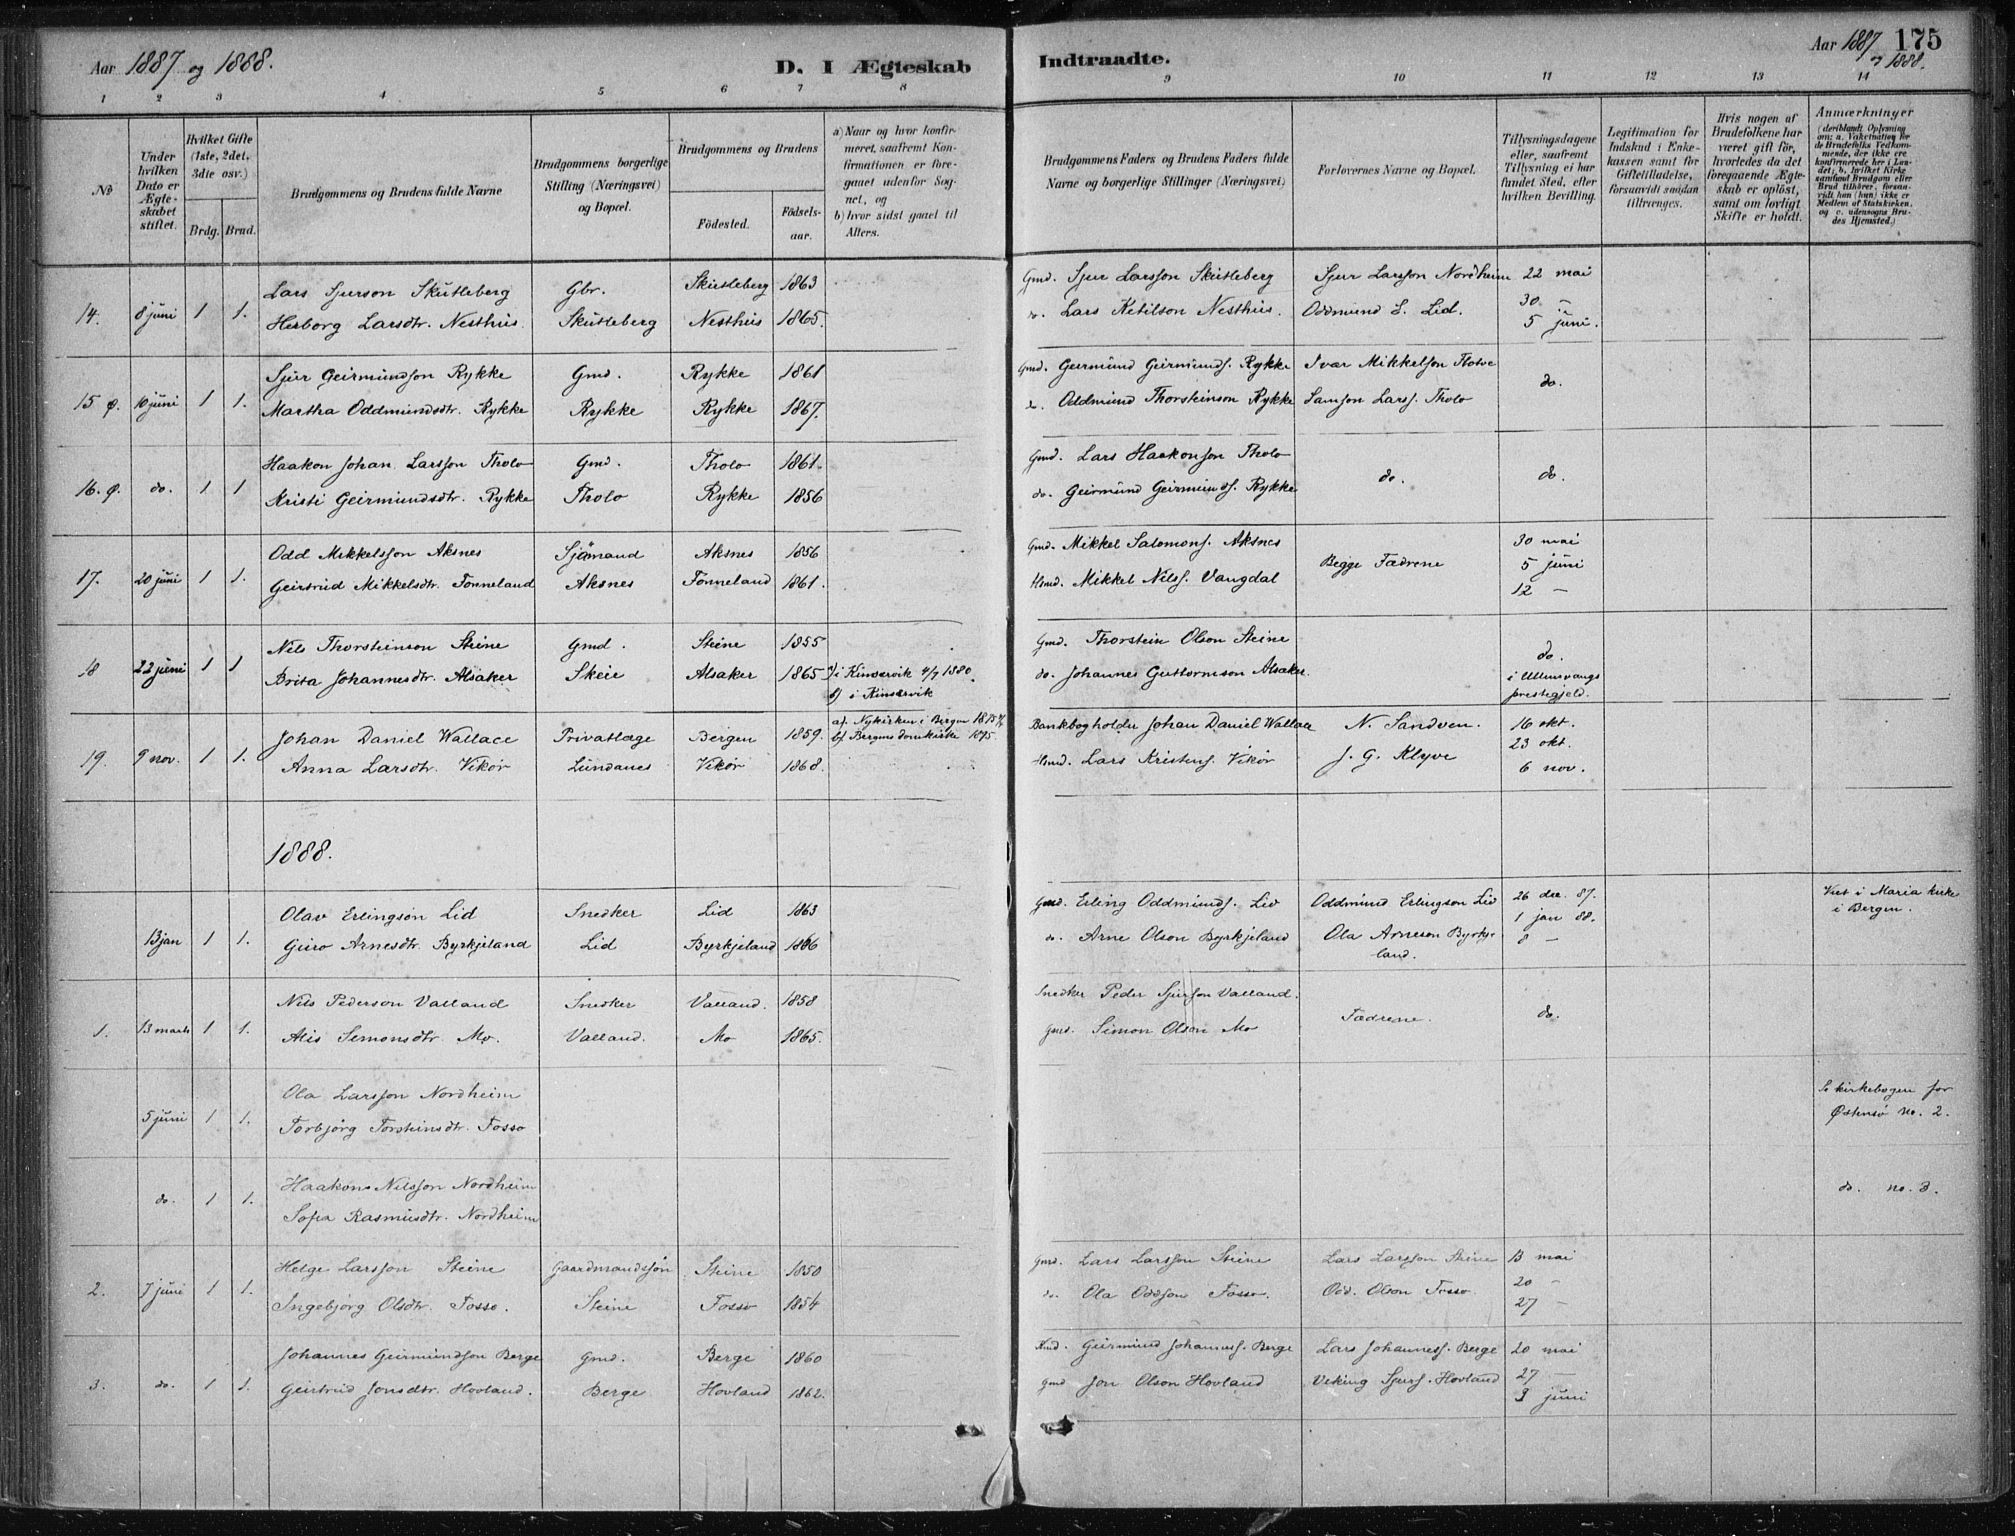 Aar 1887 og 1888.
D. I Ægteskab Indtraadte.
Aar 1887 175
og 1888.
1 2 3 4 5 6 7 8 9 10 11 12 13 14
No
Under hvilken Dato er Ægteskabet stiftet.
Hvilket Gifte (1ste, 2det, 3die osv.)
Brdg. Brud.
Brudgommens og Brudens fulde Navne
Brudgommens borgerlige Stilling (Næringsvei) og Bopæl.
Brudgommens og Brudens
Födested.
Födselsaar.
a) Naar og hvor konfirmeret, saafremt Konfirmationen er foregaaet udenfor Sognet, og
b) hvor sidst gaaet til Alters.
Brudgommens Faders og Brudens Faders fulde Navne og borgerlige Stillinger (Næringsvei)
Forlovernes Navne og Bopæl.
Tillysningsdagene eller, saafremt Tillysning ei har fundet Sted, efter hvilken Bevilling.
Legitimation for Indskud i Enkekassen samt for Giftetilladelse, forsaavidt saadan tiltrænges.
Hvis nogen af Brudefolkene har været gift för, hvorledes da det foregaaende Ægteskab er oplöst, samt om lovligt Skifte er holdt.
Anmærkninger
(deriblandt Oplysning om: a. Vakcination for de Brudefolks Vedkommende, der ikke ere konfirmerede her i Landet; b. hvilket Kirkesamfund Brudgom eller Brud tilhörer, forsaavidt han (hun) ikke er Medlem af Statskirken, og c. udensogns Brudes Hjemsted.)
14. 8 juni 1 1. Lars Sjurson Skutleberg Gbr. Skutleberg 1863 Gmd. Sjur Larsson Skutleberg Sjur Larsson Nordheim 22 mai
Herborg Larsdtr. Nesthus. Skutleberg Nesthus 1865. do. Lars Ketilson Nesthus. Oddmund L. Lid. 30 „
5 juni.
15 Ø. 10 juni 1 1. Sjur Geirmundson Rykke Gmd. Rykke 1861 Gmd. Geirmund Geirmunds. Rykke Ivar Mikkelson Flotve do.
Martha Oddmundsdtr. Rykke Rykke Rykke 1867. do. Oddmund Thorsteinson Rykke Samson Larss. Tholo
16. Ø. do. 1 1 Haakon Johan Larsson Tholo Gmd. Tholo 1861. Gmd. Lars Haakonson Tholo do. do.
Kristi Geirmundsdtr. Rykke Tholo Rykke 1856 do. Geirmund Geirmunds. Rykke
17. 20 juni 1 1. Odd Mikkelsson Aksnes Sjömand Aksnes 1856 Gmd. Mikkel Salomons. Aksnes Begge Fædrene 30 mai
Geirtrud Mikkelsdtr. Tønneland Aksnes Tønneland 1861. Hsmd. Mikkel Nilss. Vangdal 5 juni
12 –
18 22 juni 1 1 Nils Thorsteinson Steine Gmd. Steine 1855 Gmd. Thorstein Olson Steine do.
Brita Johannesdtr. Alsaker Skeie Alsaker 1865 a) i Kinservik 4/7 1880. do. Johannes Guttormson Alsaker. i Ullensvangs
b) i Kinservik prestegjeld.
19. 9 nov. 1 1. Johan Daniel Wallace Privatlæge Bergen 1859. a). Nykirken i Bergen 1875 Bankbogholder Johan Daniel Wallace N. Sandven. 16 okt.
b) Bergens domkirke 1875. 23 okt.
Anna Larsdtr. Vikör Lundanes Vikör 1868. Hsmd. Lars Kristens. Vikör J. G. Klyve 6 nov.
1888.
13 jan 1 1. Olav Erlingson Lid Snedker Lid 1863 Gmd. Erling Oddmunds. Lid Oddmund Erlingson Lid 26 dec. 87. Viet i Maria kirke
i Bergen.
Guro Arnesdtr. Byrkjeland Lid Byrkjeland 1866 do. Arne Olson Byrkjeland Ola Arneson Byrkje 1 jan 88.
land. 8 –
1. 13 marts 1 1. Nils Pederson Valland Snedker Valland. 1858 Snedker Peder Sjurson Valland. Fædrene. do.
Alis Simonsdtr. Mo. Valland. Mo 1865. Gmd. Simon Olson Mo
5 juni 1 1. Ola Larsson Nordheim Se kirkebogen for
Torbjörg Torsteinsdtr. Fosso Østensö no. 2.
do. 1 1. Haakon Nilsson Nordheim do. no. 3.
Sofia Rasmusdtr. Nordheim
2. 7 juni 1 1. Helge Larsson Steine Gaardmandssön Steine 1850 Gmd. Lars Larsson Steine Lars Larsson Steine 13 mai
Ingebjörg Olsdtr. Fosso. Steine Fosso 1854 do. Ola Oddson Fosso. Odd. Olson Fosso 20 –
27 –
3. do. 1 1. Johannes Geirmundson Berge Gmd. Berge 1860 Kmd. Geirmund Johanness. Berge Lars Johanness. Berge 20 mai
Geirtrud Jonsdtr. Hovland. Berge Hovland 1862. Gmd Jon Olson Hovland Viking Sjurs. Hovland 27 –
3 juni